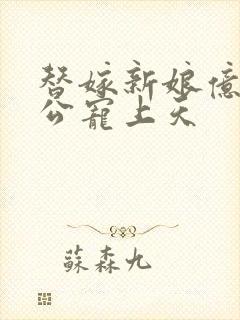 替嫁新娘億
公寵上天
蘇森九